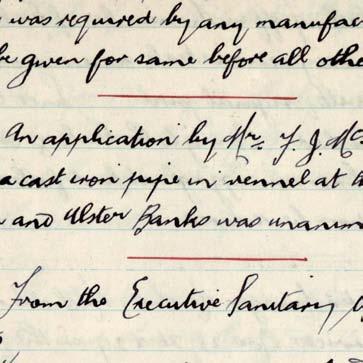 was required by any manufac
be given for same before all othe
An application by Mr. F. J. Mc
a cast iron pipe in vennel at
and Ulster Banks was unanim
From the Executive Sanitary